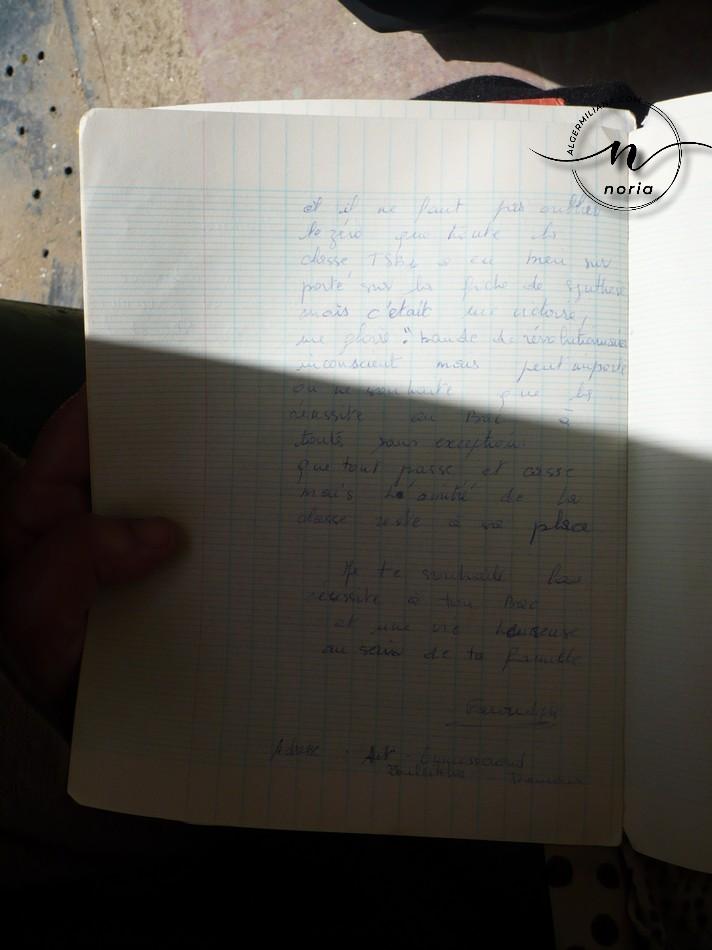 ALGERMILIANA.COM
n
noria
et il ne faut pas oublier
le zéro que toute la
classe TSB4 a eu bien sur
porté sur la fiche de synthese
mais c'était une victoire,
une gloire "bande de révolutionnaires
inconscient mais peut importe
on ne souhaite que la
réussite au Bac à
toutes sans exception
que tout passe et casse
mais l'amitié de la
classe reste à sa place
Je te souhaite la
réussite a ton Bac
et une vie heureuse
au sein de ta famille
Adresse